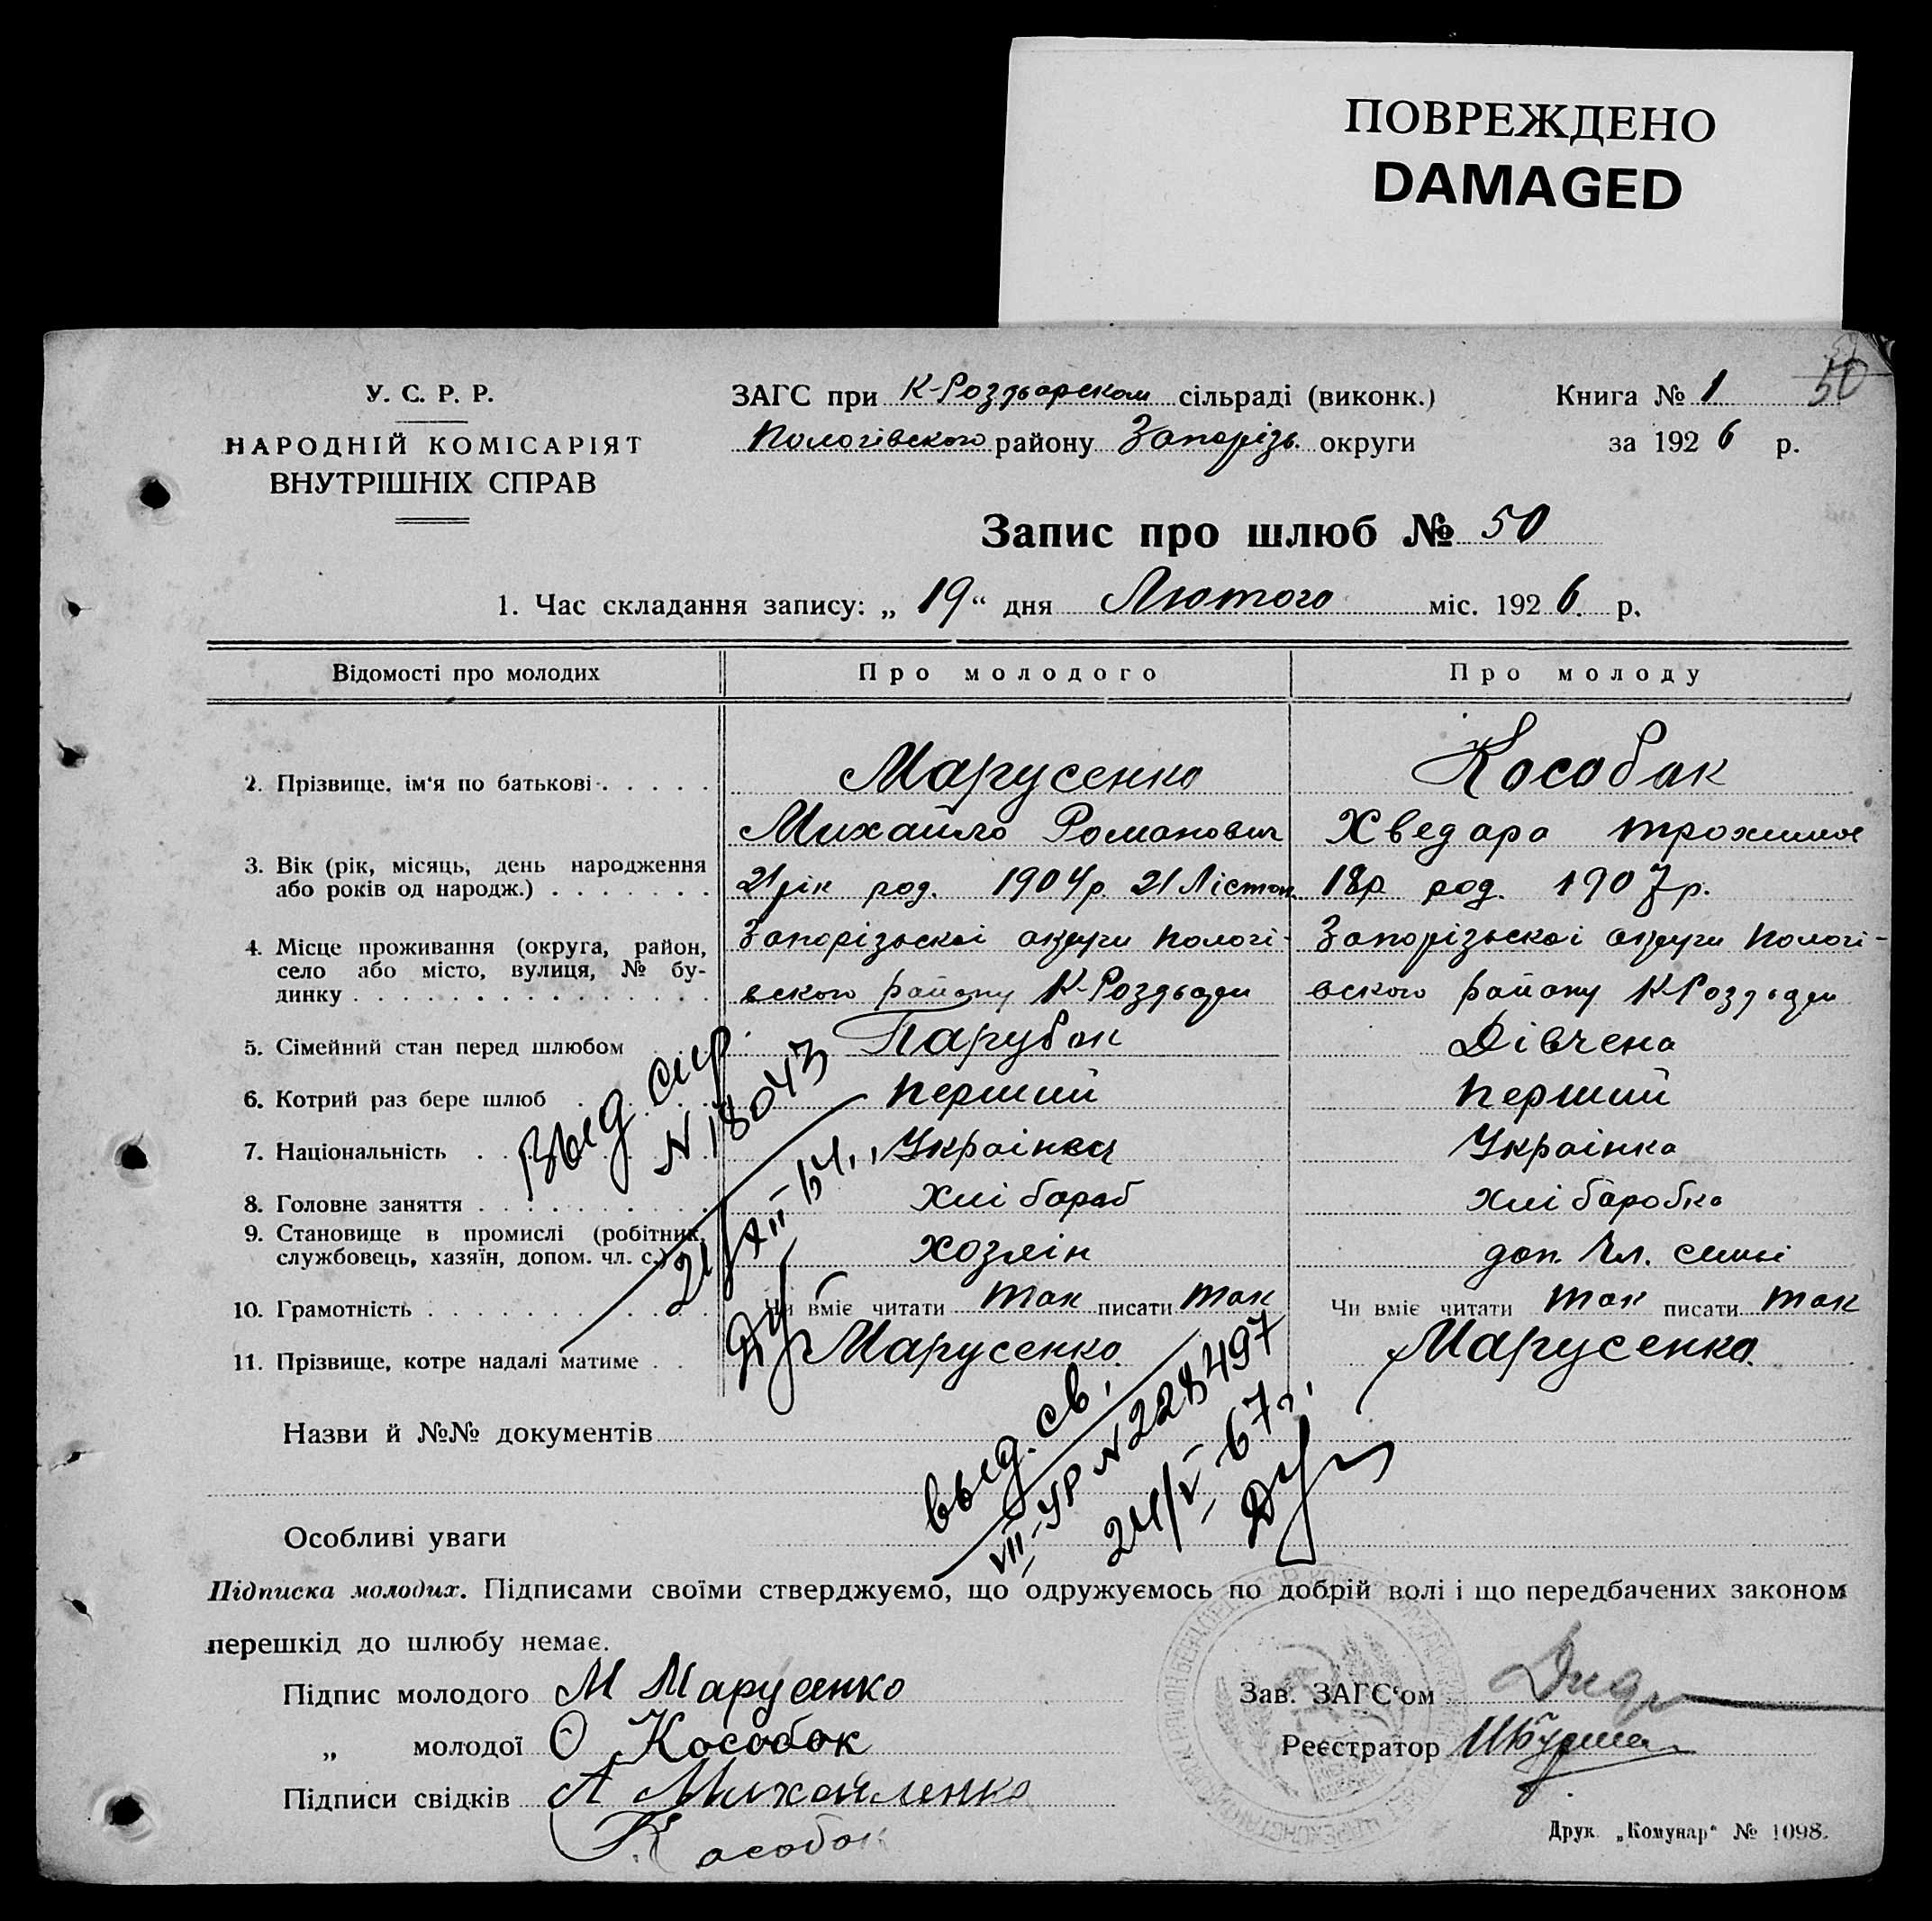 ПОВРЕЖДЕНО
DAMAGED
50
У. С. Р. Р.
НАРОДНІЙ КОМІСАРІЯТ
ВНУТРІШНІХ СПРАВ
ЗАГС при К-Роздорском сільраді (виконк.)
Пологівского району Запорізь. округи
Книга № 1
за 1926 р.
Запис про шлюб № 50
1. Час складання запису: „ 19 “ дня Лютого міс. 1926. р.
Відомості про молодих
Про молодого
Про молоду
2. Прізвище, ім'я по батькові
Марусенко
Михайло Романович
Кособок
Хведара Трохимов
3. Вік (рік, місяць, день народження
або років од народж.)
21 рік род. 1904р. 21 Лістоп
18р род. 1907р.
4. Місце проживання (округа, район,
село або місто, вулиця, № бу-
динку
Запорізьскоі округи Пологі-
вского району К-Роздори
Запорізьскоі округи Пологі-
вского району К-Роздори
5. Сімейний стан перед шлюбом
Парубок
Дівчена
6. Котрий раз бере шлюб
Перший
Перший
7. Національність
Украінец
Украінка
8. Головне заняття
хлібароб
хлібаробка
9. Становище в промислі (робітник,
службовець, хазяїн, допом. чл. с.)
хозяін
доп. чл. симі
10. Грамотність
Чи вміє читати так писати так
Чи вміє читати так писати так
11. Прізвище, котре надалі матиме
Марусенко.
Марусенко.
Выд. спр.
N 18043
21/XII-64.
Назви й №№ документів
выд. св.
VII-УР N 228497
24/V-67г.
Особливі уваги
Підписка молодих. Підписами своїми стверджуємо, що одружуємось по добрій волі і що передбачених законом
перешкід до шлюбу немає.
Підпис молодого М Марусенко
„ молодої О Кособок
Підписи свідків А Михайленко
Кособок
Зав. ЗАГС'ом
Реєстратор
Друк. „Комунар“ № 1098.